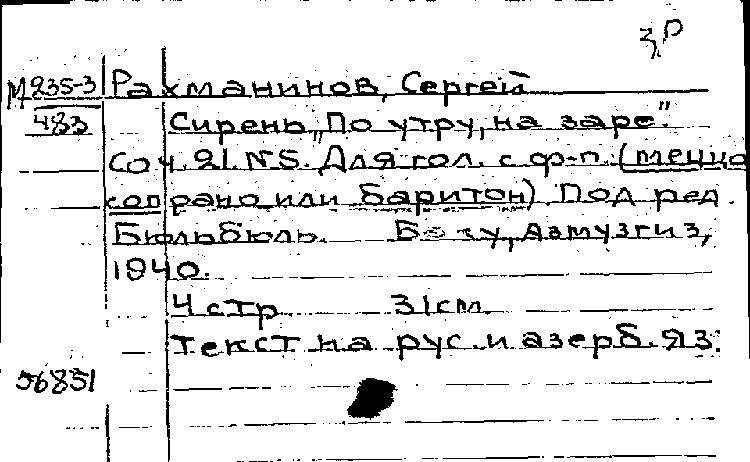 з,р
М235-3 Рахманинов, Сергей
483 Сирень „По утру, на заре".
Соч. 21. N5. Для гол. с ф-п. (меццо
сопрано или баритон) Под ред.
Бюльбюль. Баку, Азмузгиз,
1940.
4 стр 31см
Текст на рус. и азерб. яз.
56851